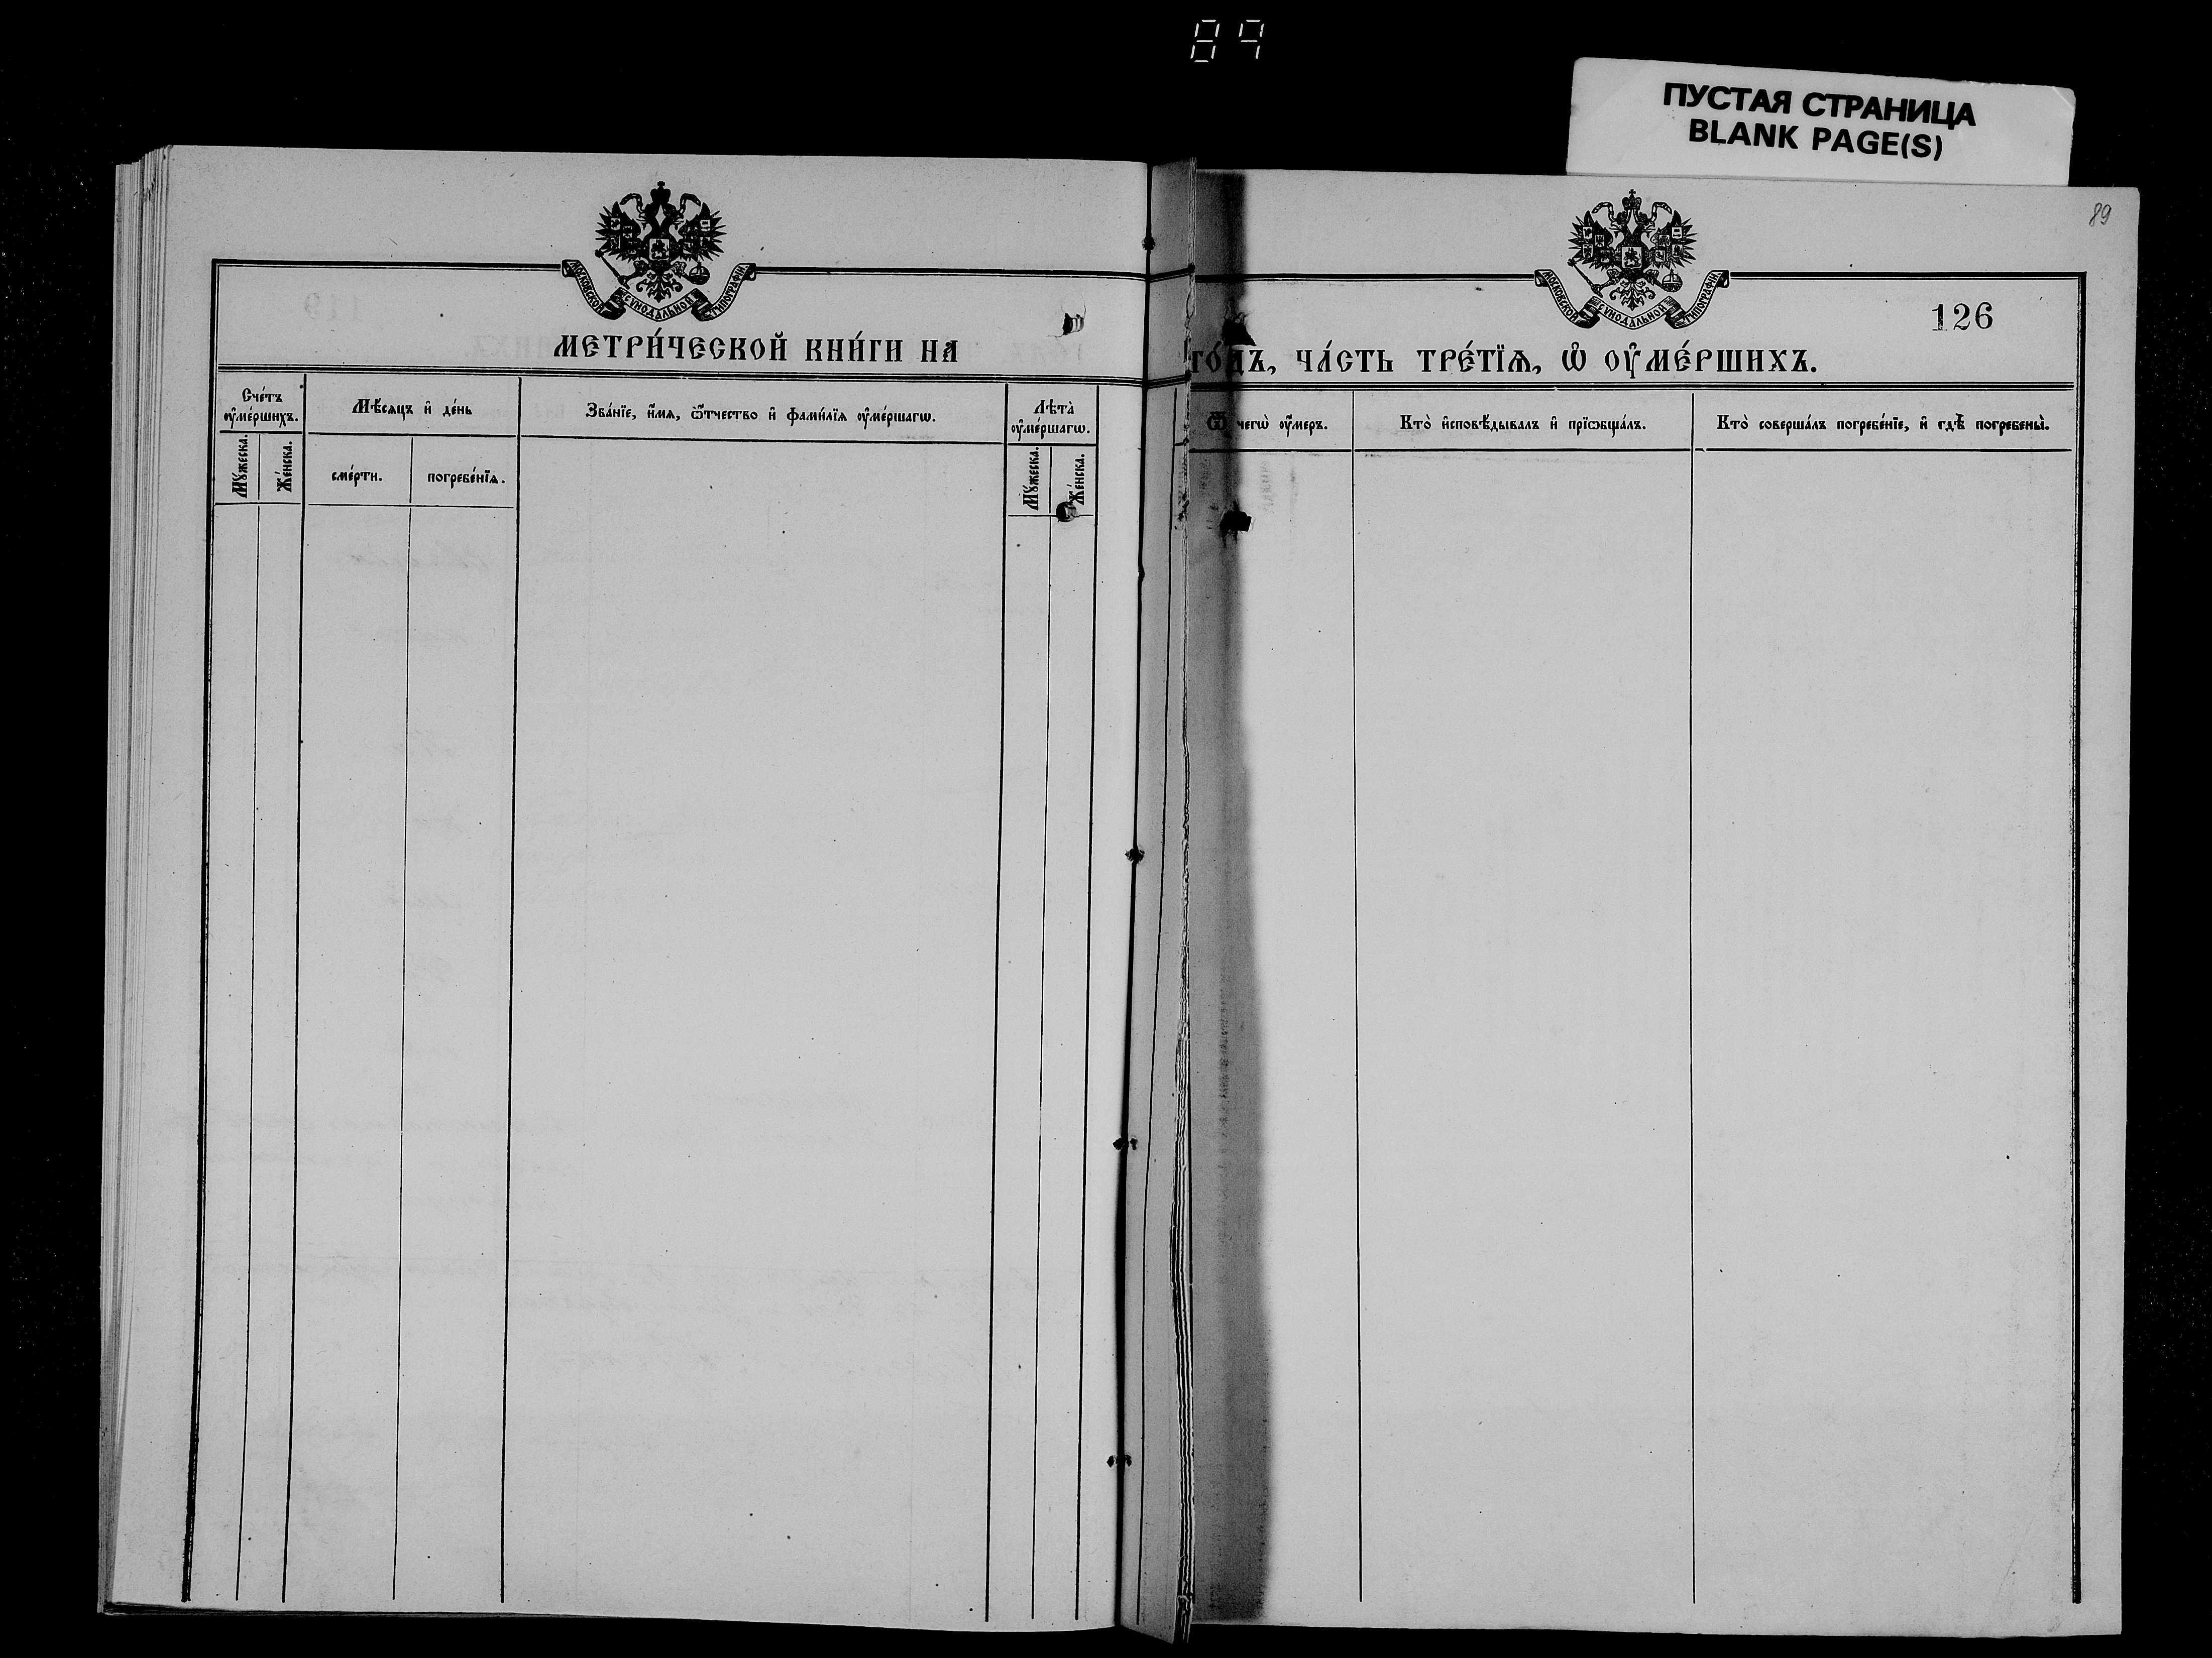 89
ПУСТАЯ СТРАНИЦА
BLANK PAGE(S)
89
МОСКОВСКОЙ СѴНОДАЛЬНОЙ ТИПОГРАФІИ.
МОСКОВСКОЙ СѴНОДАЛЬНОЙ ТИПОГРАФІИ.
119
126
МЕТРИ́ЧЕСКОЙ КНИ́ГИ НА
ГО́ДЪ, ЧА́СТЬ ТРЕ́ТЇѦ, Ѡ҆ ОУ҆МЕ́РШИХЪ.
Сче́тъ
оу҆ме́ршихъ.
Мѣ́сяцъ и҆ де́нь
Зва́нїе, и҆́мѧ, ѻ҆́тчество и҆ фами́лїѧ оу҆ме́ршагѡ.
Лѣ̑та
оу҆ме́ршагѡ.
Ѿ чегѡ̀ оу҆́меръ.
Кто̀ и҆сповѣ́дывалъ и҆ прїѡбща́лъ.
Кто̀ соверша́лъ погребе́нїе, и҆ гдѣ̀ погребены̀.
Мꙋ́жеска.
Же́нска.
сме́рти.
погребе́нїѧ.
Мꙋ́жеска.
Же́нска.